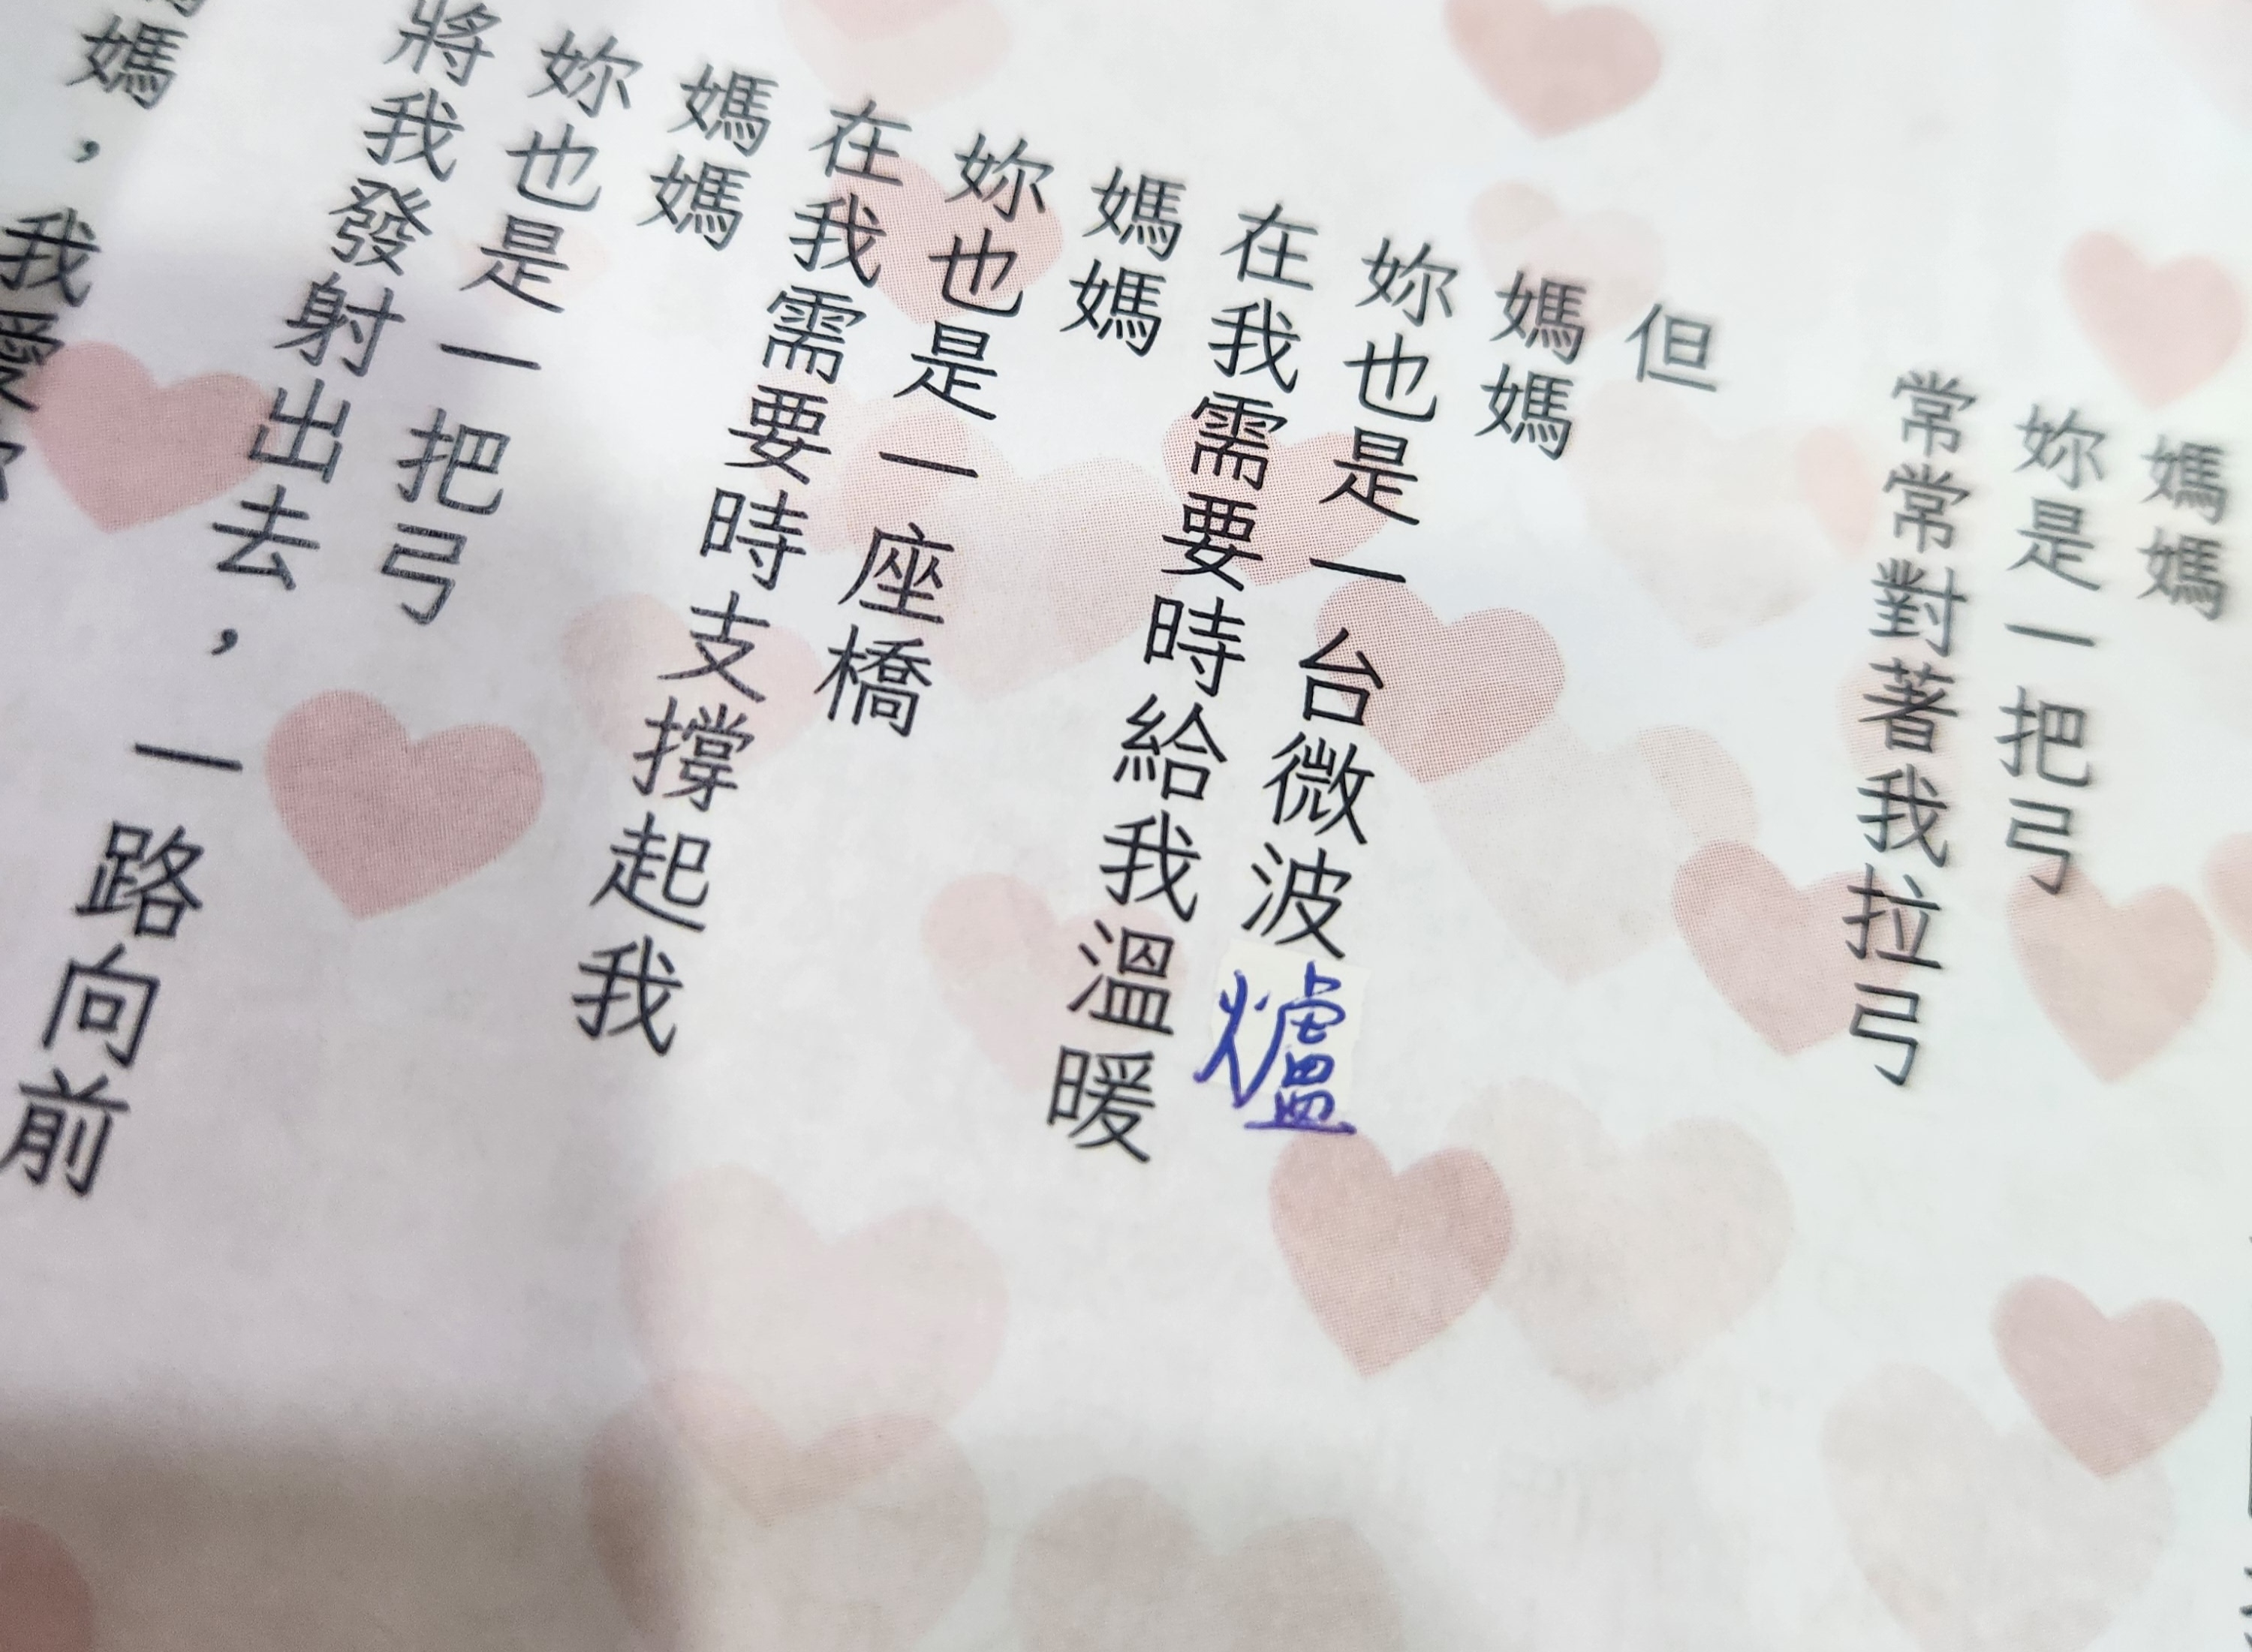 媽媽
妳是一把弓
常常對著我拉弓
但
媽媽
妳也是一台微波爐
在我需要時給我溫暖
媽媽
妳也是一座橋
在我需要時支撐起我
媽媽
妳也是一把弓
將我發射出去，一路向前
媽，我愛